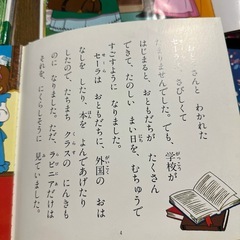 さんと わかれた
さびしくて
たまりませんでした。でも、学校が
はじまると、おともだちが たくさん
できて、たのしい まい日を、むちゅうで
すごすように なりました。
セーラは おともだちに、外国の おは
なしを したり、本を よんであげたり
したので、たちまち クラスの にんきも
のに なりました。ただ、ラビニアだけは
それを、にくらしそうに 見ていました。
4